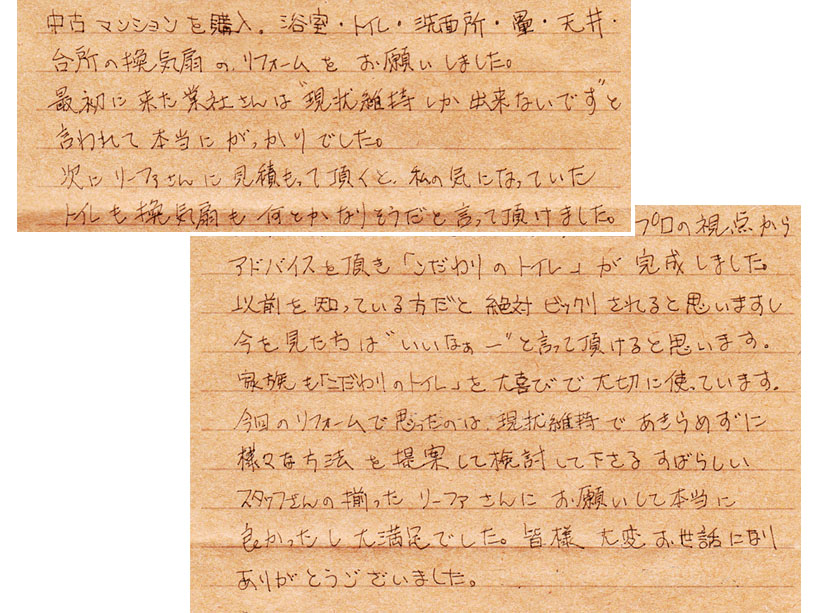 中古マンションを購入。浴室・トイレ・洗面所・畳・天井・
台所の換気扇のリフォームをお願いしました。
最初に来た業社さんは"現状維持しか出来ないです"と
言われて本当にがっかりでした。
次にリーファさんに見積もって頂くと、私の気になっていた
トイレも換気扇も何とかなりそうだと言って頂けました。
プロの視点から
アドバイスを頂き「こだわりのトイレ」が完成しました。
以前を知っている方だと絶対ビックリされると思いますし
今を見た方は"いいなぁー"と言って頂けると思います。
家族も「こだわりのトイレ」を大喜びで大切に使っています。
今回のリフォームで思ったのは、現状維持であきらめずに
様々な方法を提案して検討して下さる すばらしい
スタッフさんの揃ったリーファさんにお願いして本当に
良かったし大満足でした。皆様 大変お世話になり
ありがとうございました。